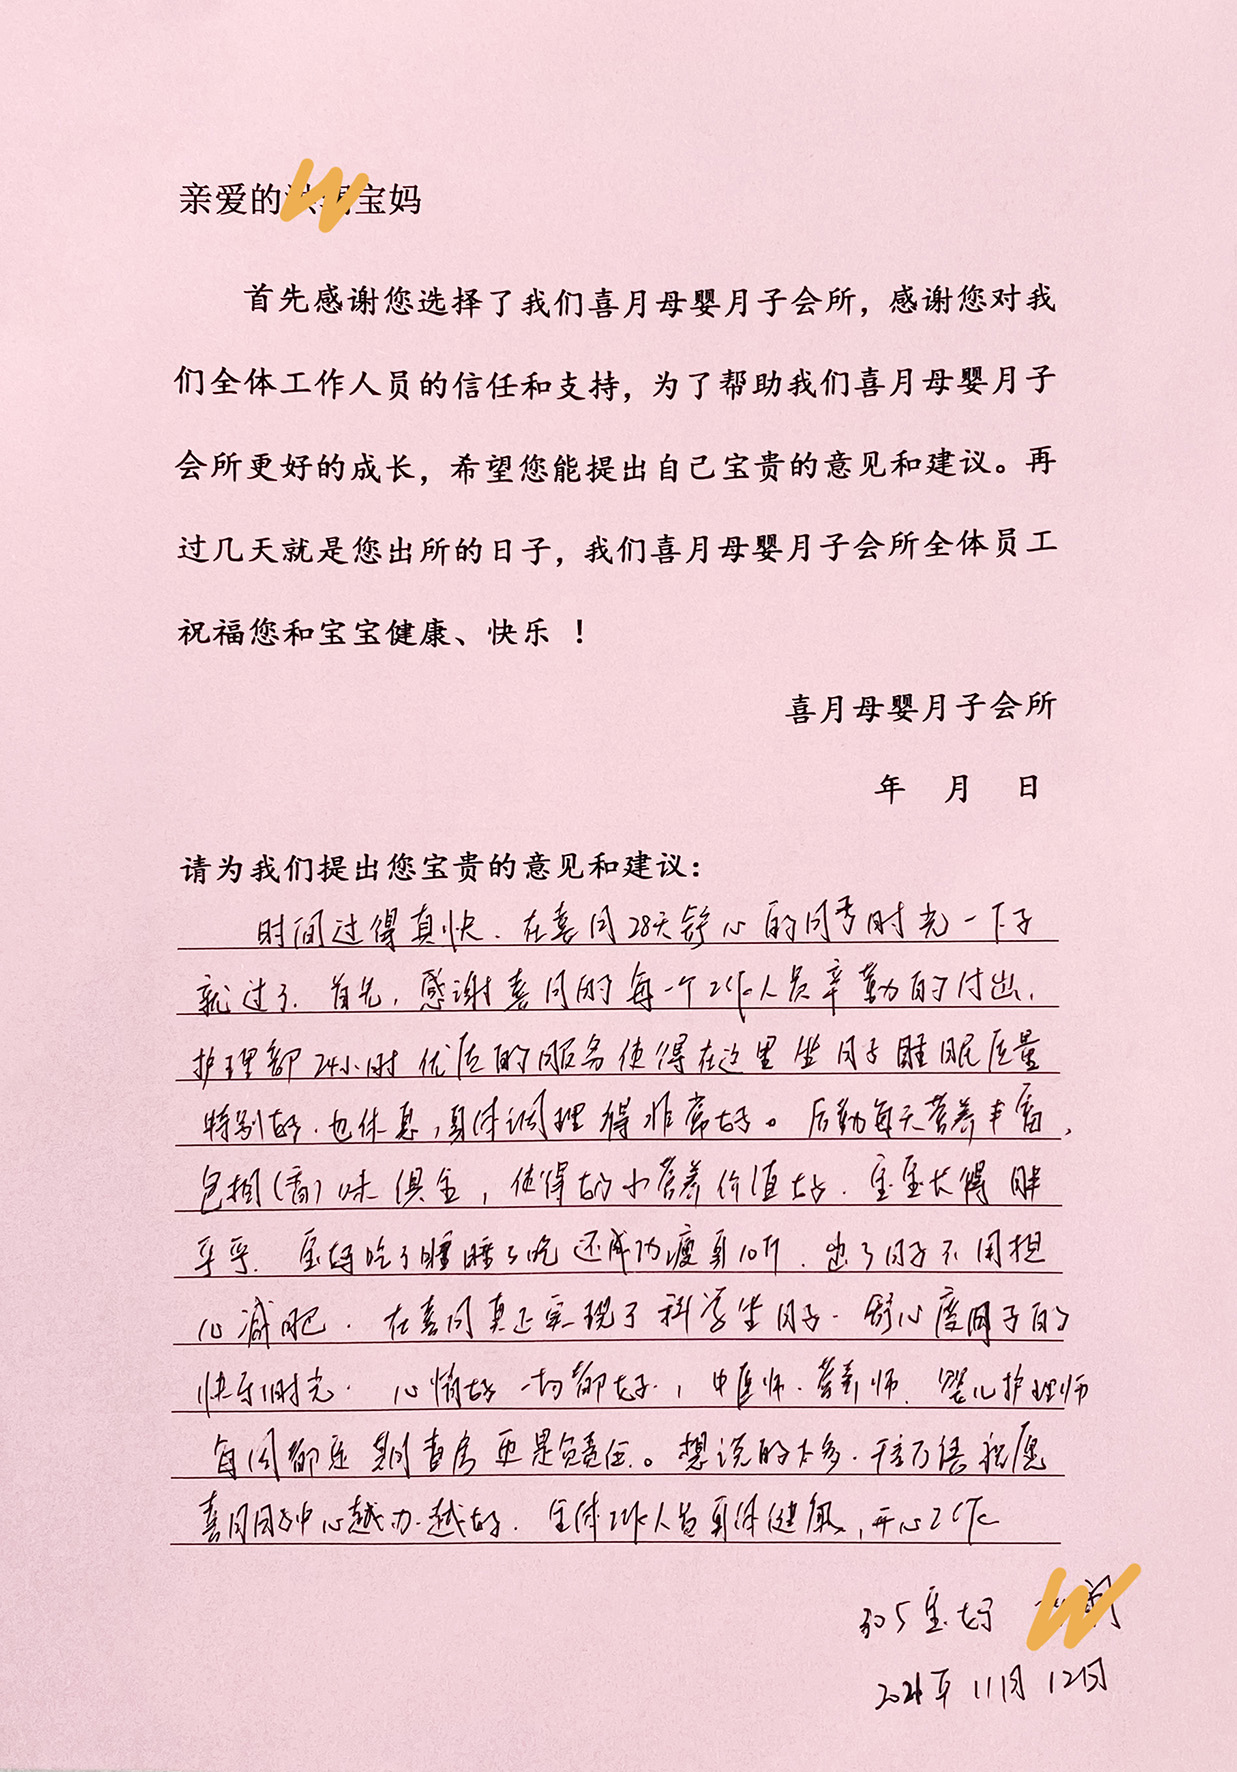 亲爱的宝妈
首先感谢您选择了我们喜月母婴月子会所，感谢您对我
们全体工作人员的信任和支持，为了帮助我们喜月母婴月子
会所更好的成长，希望您能提出自己宝贵的意见和建议。再
过几天就是您出所的日子，我们喜月母婴月子会所全体员工
祝福您和宝宝健康、快乐 ！
喜月母婴月子会所
年 月 日
请为我们提出您宝贵的意见和建议：
时间过得真快．在喜月28天舒心的月子时光一下子
就过了．首先，感谢喜月的每一个工作人员辛勤的付出，
护理部24小时优质的服务使得在这里坐月子睡眠质量
特别好．也休息，身体调理得非常好。后勤每天营养丰富，
色相(香)味俱全，使得奶水营养价值好．宝宝长得胖
乎乎．宝妈吃了睡睡了吃还成功瘦身10斤．出了月子不用担
心减肥．在喜月真正实现了科学坐月子．舒心度月子的
快乐时光．心情好一切都好，中医师．营养师．婴儿护理师
每周都定期查房更是负责任。想说的太多．千言万语祝愿
喜月月子中心越办越好．全体工作人员身体健康，开心工作
305宝妈
2021年11月12日